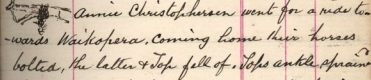 Annie Christophersen went for a ride to-
-wards Waikopera. Coming home their horses
bolted, the latter & Top fell of. Tops ankle sprain